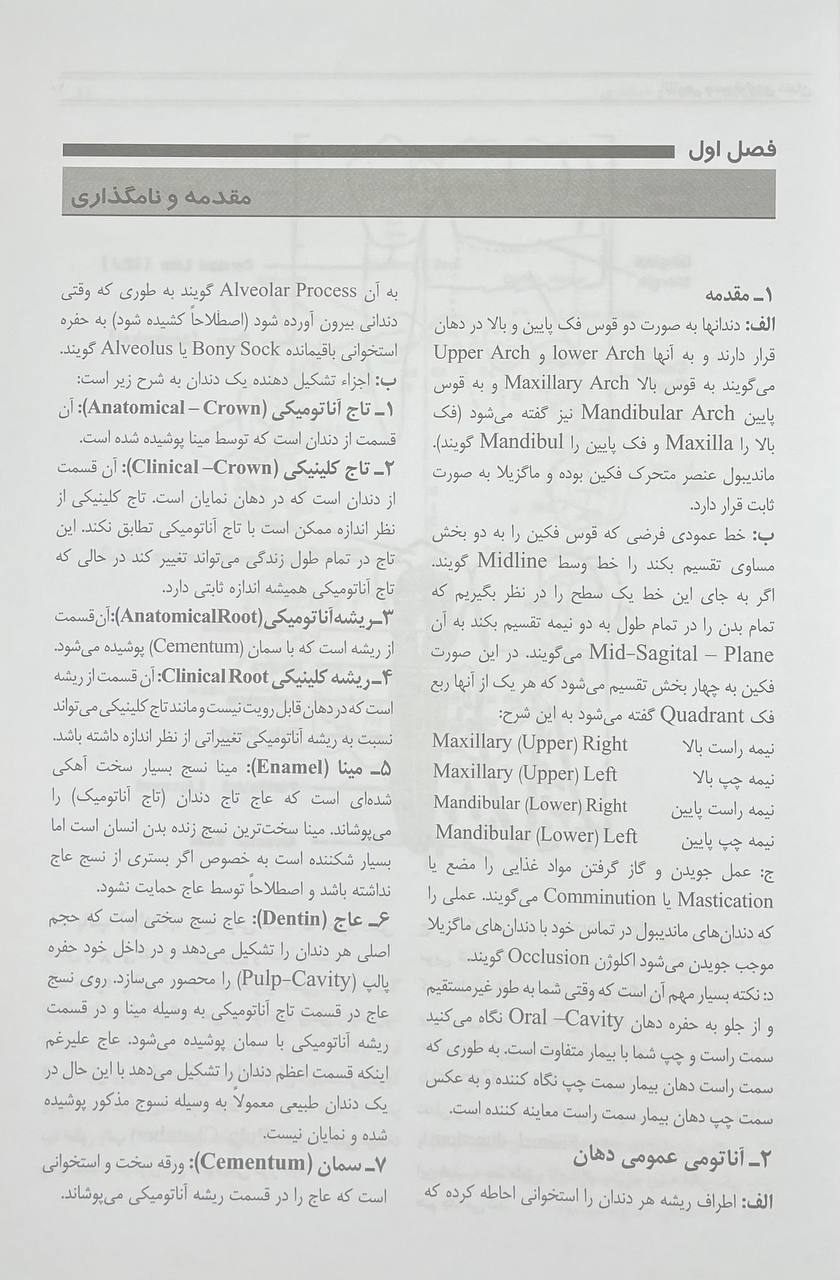 فصل اول
مقدمه و نامگذاری
۱ـ مقدمه
الف: دندانها به صورت دو قوس فک پایین و بالا در دهان
قرار دارند و به آنها lower Arch و Upper Arch
می‌گویند به قوس بالا Maxillary Arch و به قوس
پایین Mandibular Arch نیز گفته می‌شود (فک
بالا را Maxilla و فک پایین را Mandibul گویند).
ماندیبول عنصر متحرک فکین بوده و ماگزیلا به صورت
ثابت قرار دارد.
ب: خط عمودی فرضی که قوس فکین را به دو بخش
مساوی تقسیم بکند را خط وسط Midline گویند.
اگر به جای این خط یک سطح را در نظر بگیریم که
تمام بدن را در تمام طول به دو نیمه تقسیم بکند به آن
Mid–Sagital – Plane می‌گویند. در این صورت
فکین به چهار بخش تقسیم می‌شود که هر یک از آنها ربع
فک Quadrant گفته می‌شود به این شرح:
نیمه راست بالا Maxillary (Upper) Right
نیمه چپ بالا Maxillary (Upper) Left
نیمه راست پایین Mandibular (Lower) Right
نیمه چپ پایین Mandibular (Lower) Left
ج: عمل جویدن و گاز گرفتن مواد غذایی را مضع یا
Mastication یا Comminution می‌گویند. عملی را
که دندان‌های ماندیبول در تماس خود با دندان‌های ماگزیلا
موجب جویدن می‌شود اکلوژن Occlusion گویند.
د: نکته بسیار مهم آن است که وقتی شما به طور غیرمستقیم
و از جلو به حفره دهان Oral –Cavity نگاه می‌کنید
سمت راست و چپ شما با بیمار متفاوت است. به طوری که
سمت راست دهان بیمار سمت چپ نگاه کننده و به عکس
سمت چپ دهان بیمار سمت راست معاینه کننده است.
۲ـ آناتومی عمومی دهان
الف: اطراف ریشه هر دندان را استخوانی احاطه کرده که
به آن Alveolar Process گویند به طوری که وقتی
دندانی بیرون آورده شود (اصطلاحاً کشیده شود) به حفره
استخوانی باقیمانده Bony Sock یا Alveolus گویند.
ب: اجزاء تشکیل دهنده یک دندان به شرح زیر است:
۱ـ تاج آناتومیکی (Anatomical – Crown): آن
قسمت از دندان است که توسط مینا پوشیده شده است.
۲ـ تاج کلینیکی (Clinical –Crown): آن قسمت
از دندان است که در دهان نمایان است. تاج کلینیکی از
نظر اندازه ممکن است با تاج آناتومیکی تطابق نکند. این
تاج در تمام طول زندگی می‌تواند تغییر کند در حالی که
تاج آناتومیکی همیشه اندازه ثابتی دارد.
۳ـ ریشه آناتومیکی (AnatomicalRoot): آن قسمت
از ریشه است که با سمان (Cementum) پوشیده می‌شود.
۴ـ ریشه کلینیکی Clinical Root: آن قسمت از ریشه
است که در دهان قابل رویت نیست و مانند تاج کلینیکی می‌تواند
نسبت به ریشه آناتومیکی تغییراتی از نظر اندازه داشته باشد.
۵ـ مینا (Enamel): مینا نسج بسیار سخت آهکی
شده‌ای است که عاج تاج دندان (تاج آناتومیک) را
می‌پوشاند. مینا سخت‌ترین نسج زنده بدن انسان است اما
بسیار شکننده است به خصوص اگر بستری از نسج عاج
نداشته باشد و اصطلاحاً توسط عاج حمایت نشود.
۶ـ عاج (Dentin): عاج نسج سختی است که حجم
اصلی هر دندان را تشکیل می‌دهد و در داخل خود حفره
پالپ (Pulp–Cavity) را محصور می‌سازد. روی نسج
عاج در قسمت تاج آناتومیکی به وسیله مینا و در قسمت
ریشه آناتومیکی با سمان پوشیده می‌شود. عاج علیرغم
اینکه قسمت اعظم دندان را تشکیل می‌دهد با این حال در
یک دندان طبیعی معمولاً به وسیله نسوج مذکور پوشیده
شده و نمایان نیست.
۷ـ سمان (Cementum): ورقه سخت و استخوانی
است که عاج را در قسمت ریشه آناتومیکی می‌پوشاند.